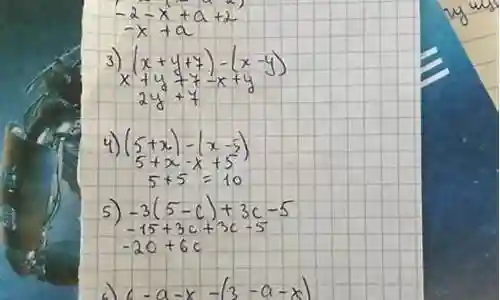 -2-x+a+2
-x+a
3) (x+y+7)-(x-y)
x+y+7-x+y
2y+7
4) (5+x)-(x-5)
5+x-x+5
5+5=10
5) -3(5-c)+3c-5
-15+3c+3c-5
-20+6c
6) 6-a-x-(3-a-x)